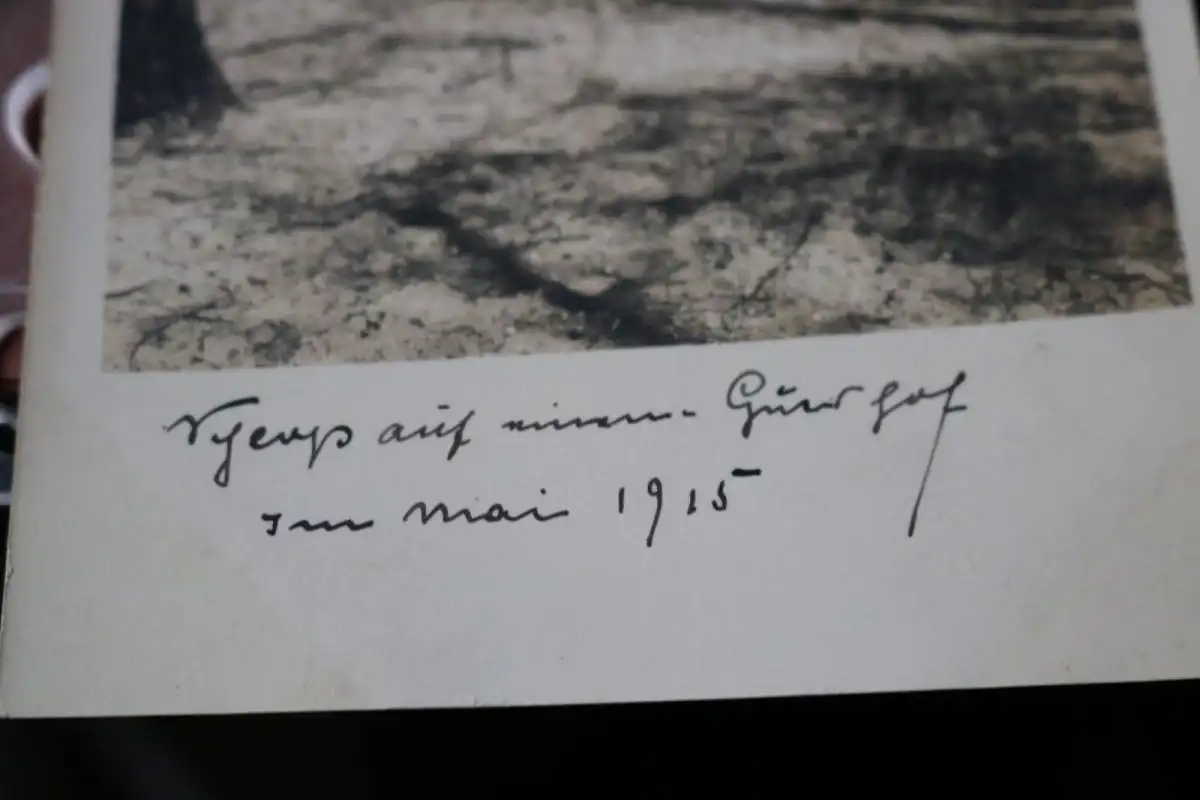 auf einem Gutshof
im Mai 1915